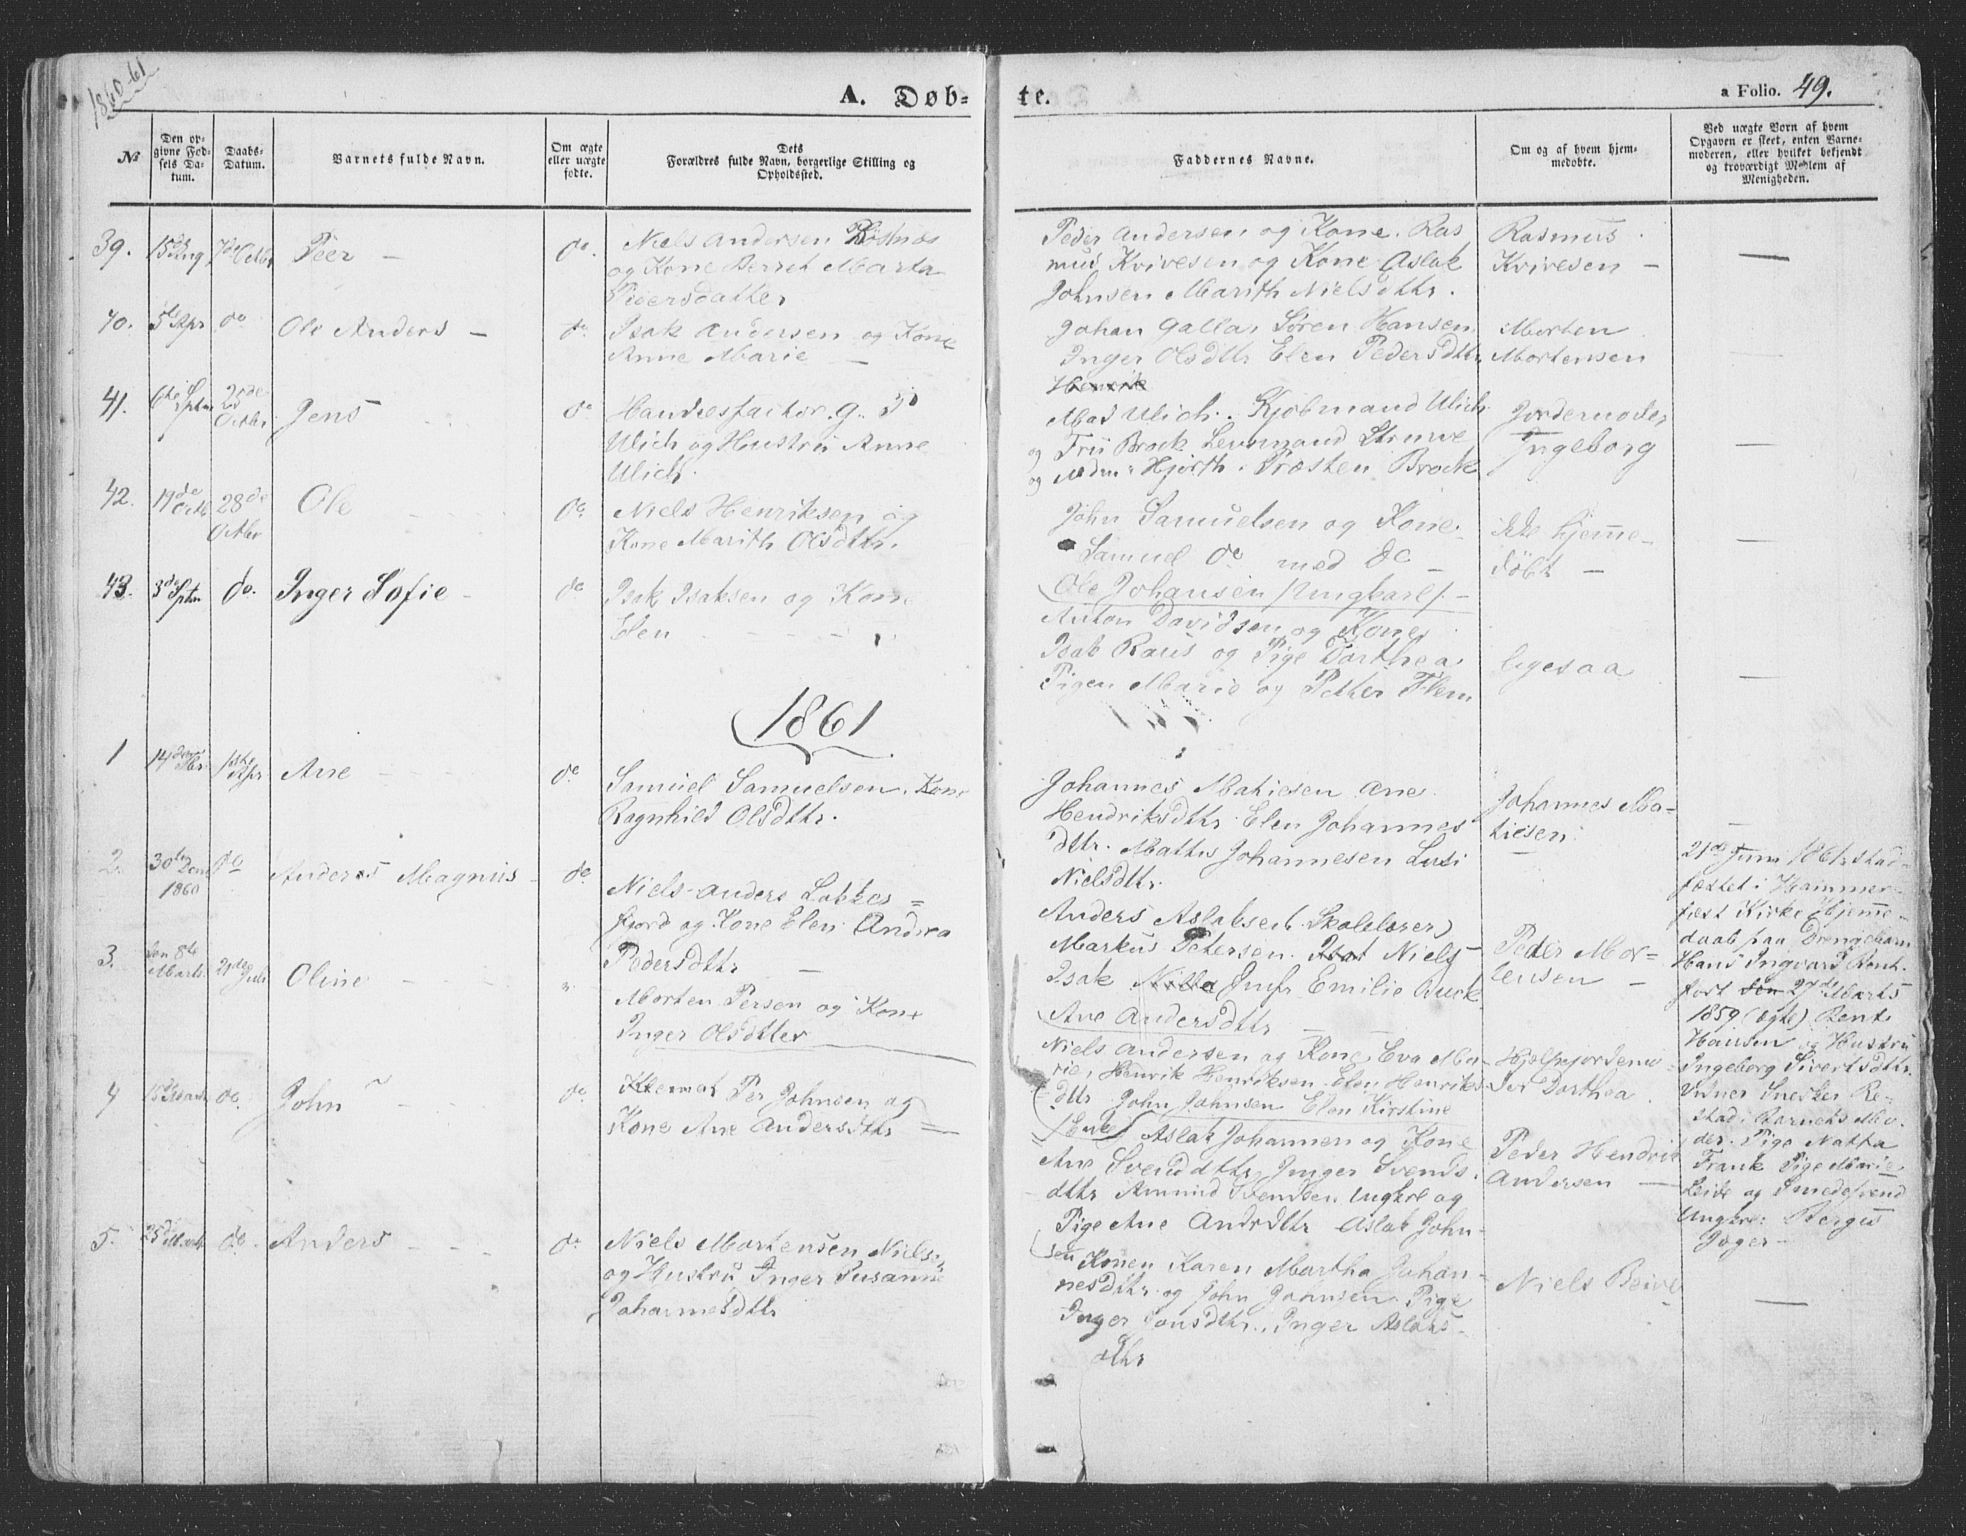 1860-61
A. Døb-
te.
a Folio. 49.
№
Den op-
givne Fød-
sels Da-
tum.
Daabs-
Datum.
Barnets fulde Navn.
Om ægte
eller uægte
fødte.
Dets
Forældres fulde Navn, borgerlige Stilling og
Opholdssted.
Faddernes Navne.
Om og af hvem hjem-
medøbte.
Ved uægte Børn af hvem
Opgaven er skeet, enten Barne-
moderen, eller hvilket bekjendt
og troværdigt Medlem af
Menigheden.
39.
15de Aug
7de Octbr
Peer -
do.
Niels Andersen
og Kone Berret Marta
Pedersdatter
Peder Andersen og Kone. Ras
mus Kvivesen og Kone Aslak
Johnsen Marith Nielsdttr.
Rasmus
Kvivesen -
40.
5te Apr
do
Ole Anders -
do.
Isak Andersen og Kone
Anne Marie -
Johan Galla, Søren Hansen
Inger Olsdttr Elen Pedersdttr
Henrik
Morten
Mortensen
41.
6te Sptm
Octbr
Jens
do
Handesfactor. G.
Ulich og Hustru Anne
Ulich.
Mad Ulich. Kjøbmand Ulich
og Fru Brock Lensmand Struwe
og Mdm. Hjorth. Præsten Brock
Jordemoder
Ingeborg
42.
19de Octb
28de
Octbr
Ole
do.
Niels Henriksen og
Kone Marith Olsdttr.
John Samuelsen og Kone.
Samuel do med do -
Ole Johansen /Ungkarl/. -
ikke hjemme-
døbt -
43.
3de Sptm
do.
Inger Sofie -
do
Isak Isaksen og Kone
Elen
Anton Davidsen og Kone
Isak Raus og Pige Dorthea
Pigen Marie og Petter Flem
ligesaa
1861
1
14de
1ste Apr
Ane
do
Samuel Samuelsen. Kone
Ragnhild Olsdttr.
Johannes Matiesen Ane
Hendriksdttr. Elen Johannes
dttr. Mattis Johannesen Lusi
Nielsdttr.
Johannes Ma-
tiesen
2.
30te
1860
do
Anders Magnus -
do.
Niels Anders Lakkes=
fjord og Kone Elen Andrea
Pedersdttr -
Anders Aslaksen (Skolelærer)
Markus Petersen. Niels
Isak Jmfr Emilie Buck
Ane Andersdttr -
Peder Mor=
tensen -
21de Juni 1861 stad-
fæstet i Hammer-
fest Kirke Hjemme-
daab paa Drengebarn
Hans Ingvard
født den 27de Marts
1859 (ægte) Bent
Hansen og Hustru
Ingeborg Sivertsdttr.
Vidner Snedker Re-
stad, Barnets Mo-
der. Pige Natta
Frank Pige Marie
Leide og Smedesvend
Ungkrl:
Jæger -
3.
den 8te
Marts
21de Juli
Oline
"
Morten Persen og Kone
Inger Olsdtter
Niels Andersen og Kone, Eva Ma-
rie, Henrik Henriksen. Elen Henriks
dttr John Johnsen Elen Kirstine
/Enke/
Hjælpejordemo=
der Dorthea.
4
do.
John
do.
Klemat Per Johnsen og
Kone Ane Andersdttr =
Aslak Johannen og Kone
Ane Svendsdttr, Inger Svends
dttr Amund Svendsen Ungkrl og
Pige Ane Andrdttr
Peder Hendrik
Andersen -
5.
25de Marts
do.
Anders
do
Niels Mortensen Niels,
og Hustru Inger Susanne
Johannesdttr
Aslak John-
sen Konen Karen Martha Johan-
nesdttr. og John Johnsen. Pige
Inger Jonsdttr., Inger Aslaks-
dttr
Niels Beive